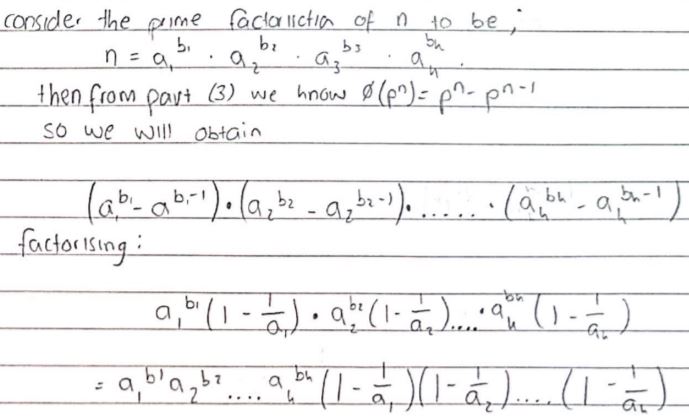 consider the prime factorisction of n to be ;
n = a₁^b₁ · a₂^b₂ · a₃^b₃ · aₖ^bₖ
then from part (3) we know ø(pⁿ) = pⁿ - pⁿ⁻¹
so we will obtain
(a₁^b₁ - a^b₁-1) · (a₂^b₂ - a₂^b₂-1) · ...... · (aₖ^bₖ - aₖ^bₖ-1)
factorising :
a₁^b₁ (1 - 1/a₁) · a₂^b₂ (1 - 1/a₂) .... · aₖ^bₖ (1 - 1/aₖ)
= a₁^b₁ a₂^b₂ .... aₖ^bₖ (1 - 1/a₁)(1 - 1/a₂) .... (1 - 1/aₖ)